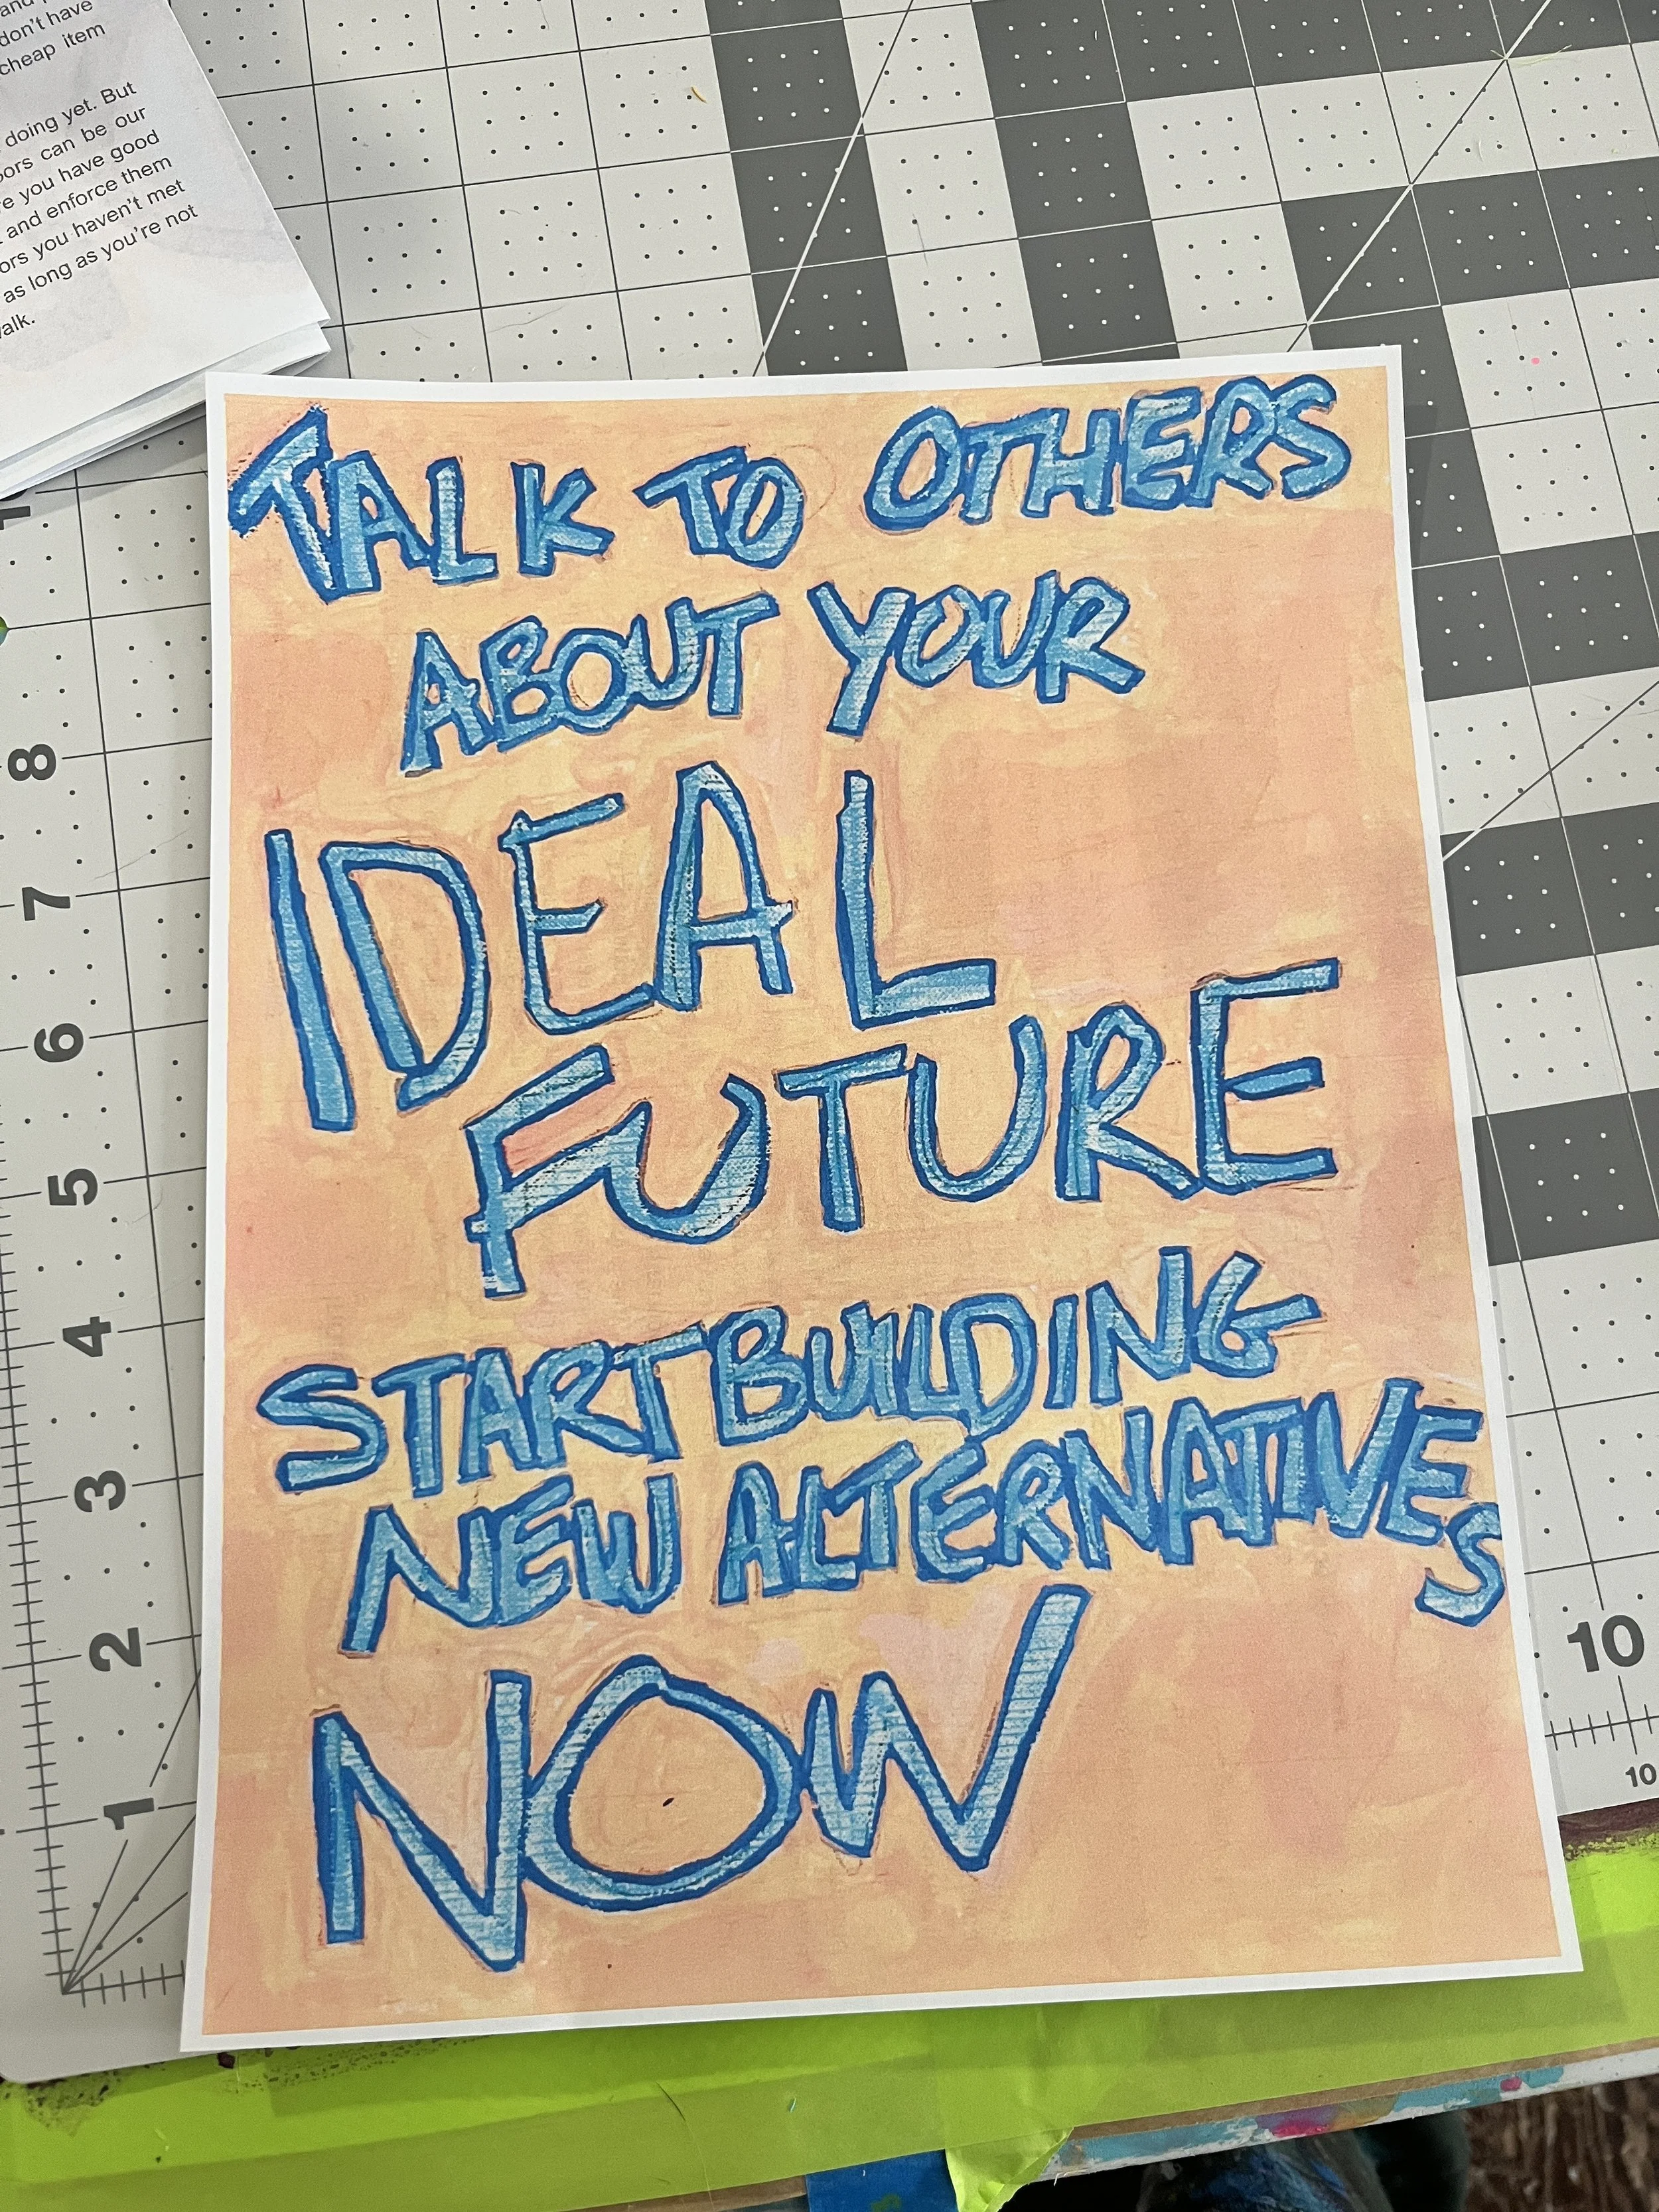 and
don't have
cheap item
doing yet. But
ors can be our
re you have good
and enforce them
ors you haven't met
as long as you're not
alk.
TALK TO OTHERS
ABOUT YOUR
IDEAL
FUTURE
START BUILDING
NEW ALTERNATIVES
NOW
8
7
6
5
4
3
2
1
10
10